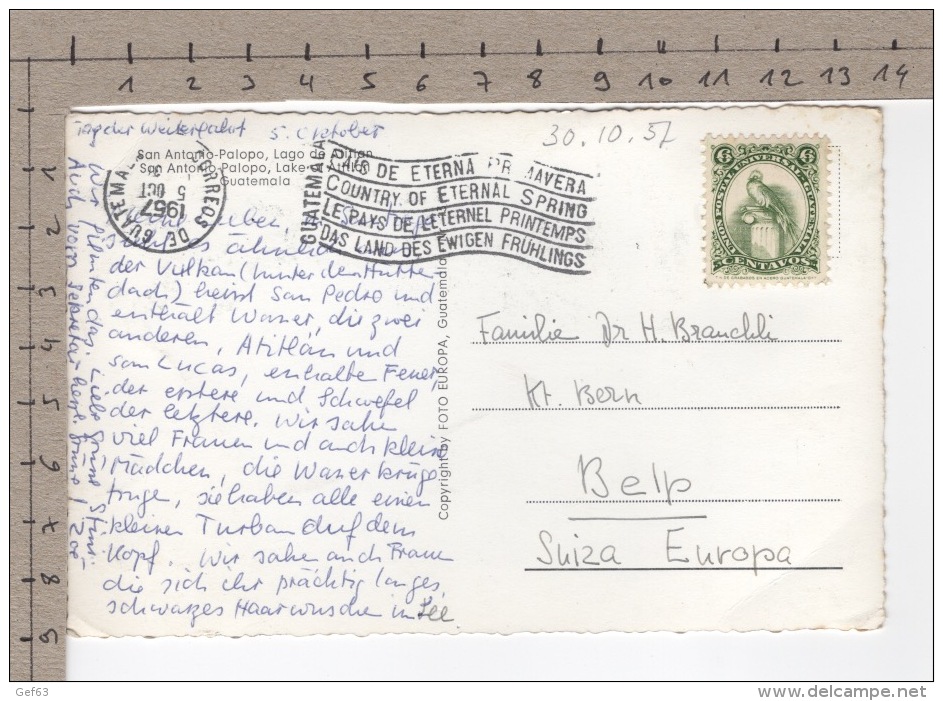 1 2 3 4 5 6 7 8 9 10 11 12 13 14
1 2 3 4 5 6 7 8 9
Tag der Weiterfahrt 5. Oktober
30.10.57
San Antonio-Palopo, Lago de Atitlan
San Antonio Palopo, Lake Atitlan
Guatemala
CORREOS DE GUATEMALA
5 OCT
1957
GUATEMALA
PAIS DE ETERNA PRIMAVERA
COUNTRY OF ETERNAL SPRING
LE PAYS DE L'ETERNEL PRINTEMPS
DAS LAND DES EWIGEN FRÜHLINGS
UNION POSTAL UNIVERSAL GUATEMALA
6 6
CENTAVOS
lieben,
ähnlich
der Vulkan (hinter dem Hütten
dach) heisst San Pedro und
enthält Wasser, die zwei
anderen, Atitlán und
San Lucas, enthalte Feuer,
der erstere und Schwefel
der letztere. Wir sahe
viel Frauen und auch kleine
Mädchen, die Wasserkrüge
truge, sie haben alle einen
kleinen Turban auf dem
Kopf. Wir sahe auch Frauen
die sich ihr prächtig langes,
schwarzes Haar wusche im See
Liebe Grüsse
Auch vom Sekretär herzl. Grüsse!
Copyright by FOTO EUROPA, Guatemala
Familie Dr H. Brauchli
Kt. Bern
Belp
Suiza Europa
Gef63
delcampe.net